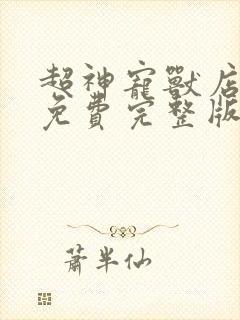 超神寵獸店
免費完整版
蕭半仙